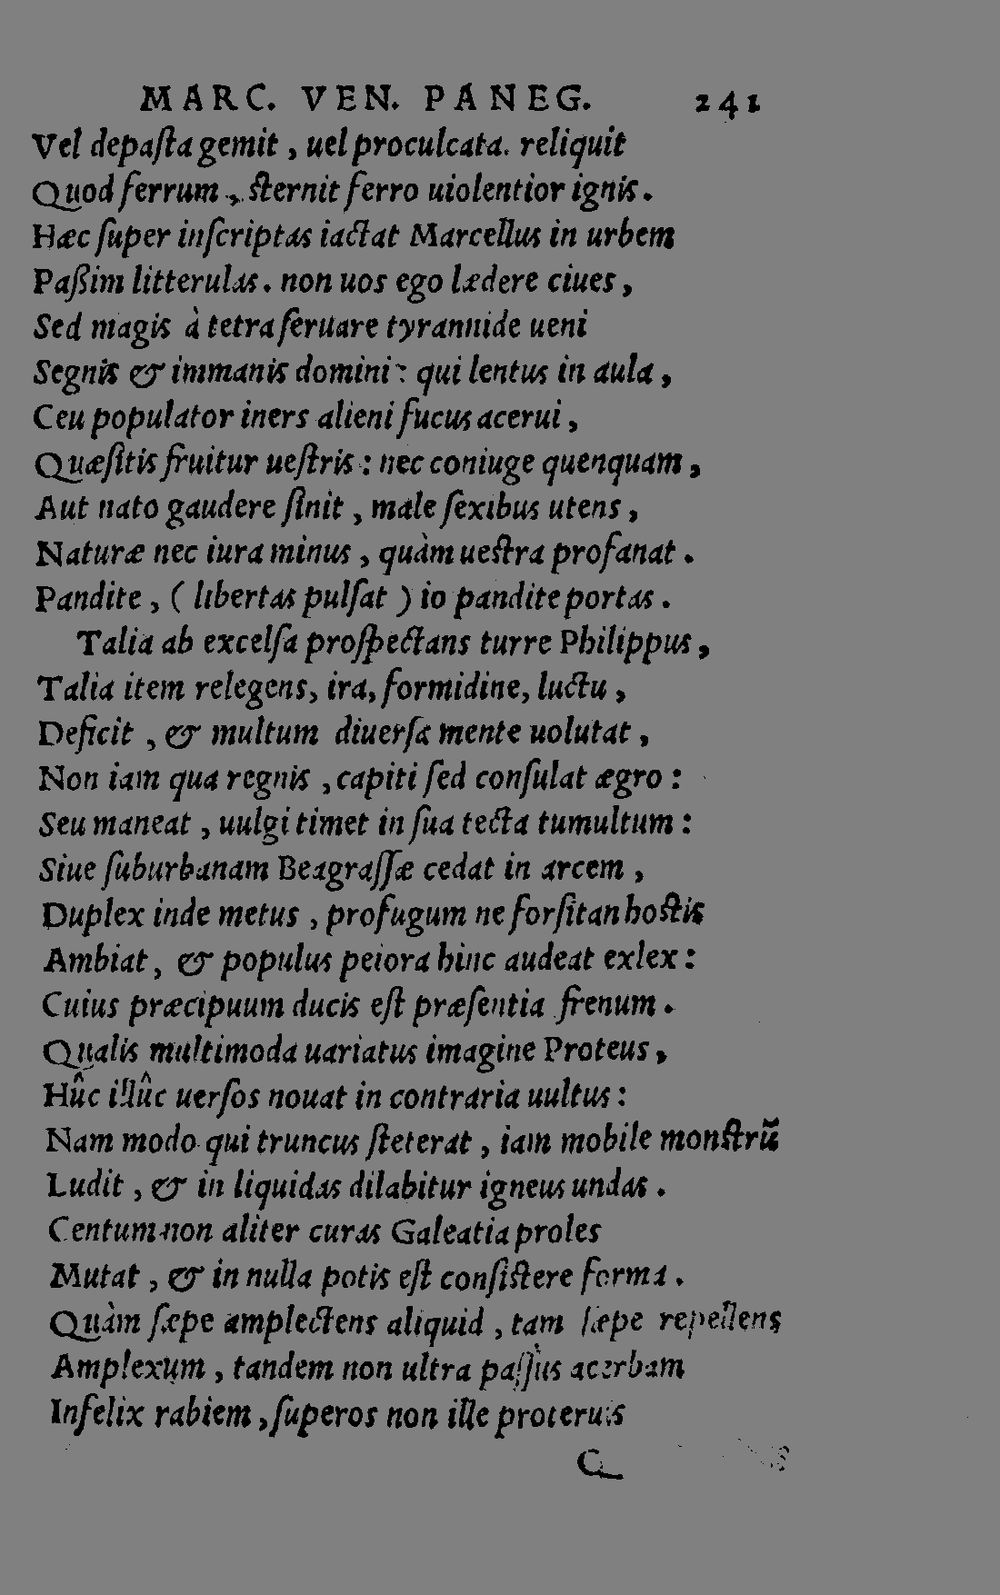 MARC. VEN. PANEG. 241
Vel depaſta gemit, uel proculcata. reliquit
Quod ferrum, ſternit ferro uiolentior ignis.
Hæc ſuper inſcriptas iactat Marcellus in urbem
Paßim litterulas. non uos ego lædere ciues,
Sed magis à tetra ſeruare tyrannide ueni
Segnis & immanis domini: qui lentus in aula,
Ceu populator iners alieni fucus acerui,
Quæſitis fruitur ueſtris: nec coniuge quenquam,
Aut nato gaudere ſinit, male ſexibus utens,
Naturæ nec iura minus, quàm ueſtra profanat.
Pandite, (libertas pulſat) io pandite portas.
Talia ab excelſa proſpectans turre Philippus,
Talia item relegens, ira, formidine, luctu,
Deficit, & multum diuerſa mente uolutat,
Non iam qua regnis, capiti ſed conſulat ægro:
Seu maneat, uulgi timet in ſua tecta tumultum:
Siue ſuburbanam Beagraſſæ cedat in arcem,
Duplex inde metus, profugum ne forſitan hoſtis
Ambiat, & populus peiora hinc audeat exlex:
Cuius præcipuum ducis eſt præſentia frenum.
Qualis multimoda uariatus imagine Proteus,
Hûc illûc uerſos nouat in contraria uultus:
Nam modo qui truncus ſteterat, iam mobile monſtrũ
Ludit, & in liquidas dilabitur igneus undas.
Centum non aliter curas Galeatia proles
Mutat, & in nulla potis eſt conſiſtere forma.
Quàm ſæpe amplectens aliquid, tam ſæpe repellens
Amplexum, tandem non ultra paſſus acerbam
Infelix rabiem, ſuperos non ille proteruis
Q